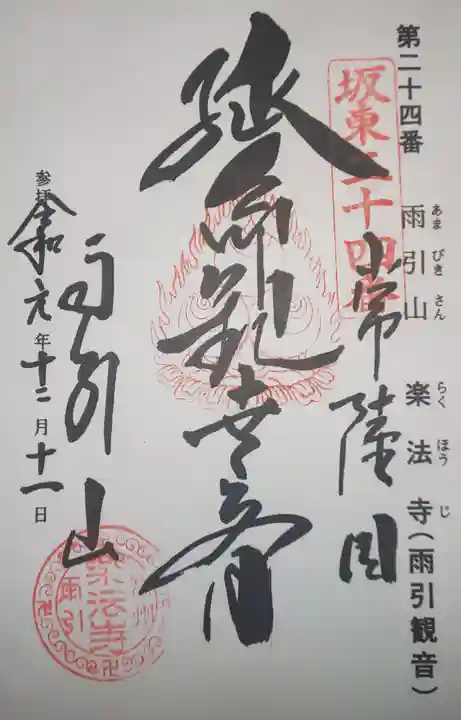 第二十四番 雨引山 楽法寺(雨引観音)
あまびきさん らくほうじ
坂東二十四番
常陸国
延命観世音
雨引山
参拝
令和元年十二月十一日
楽法寺
雨引